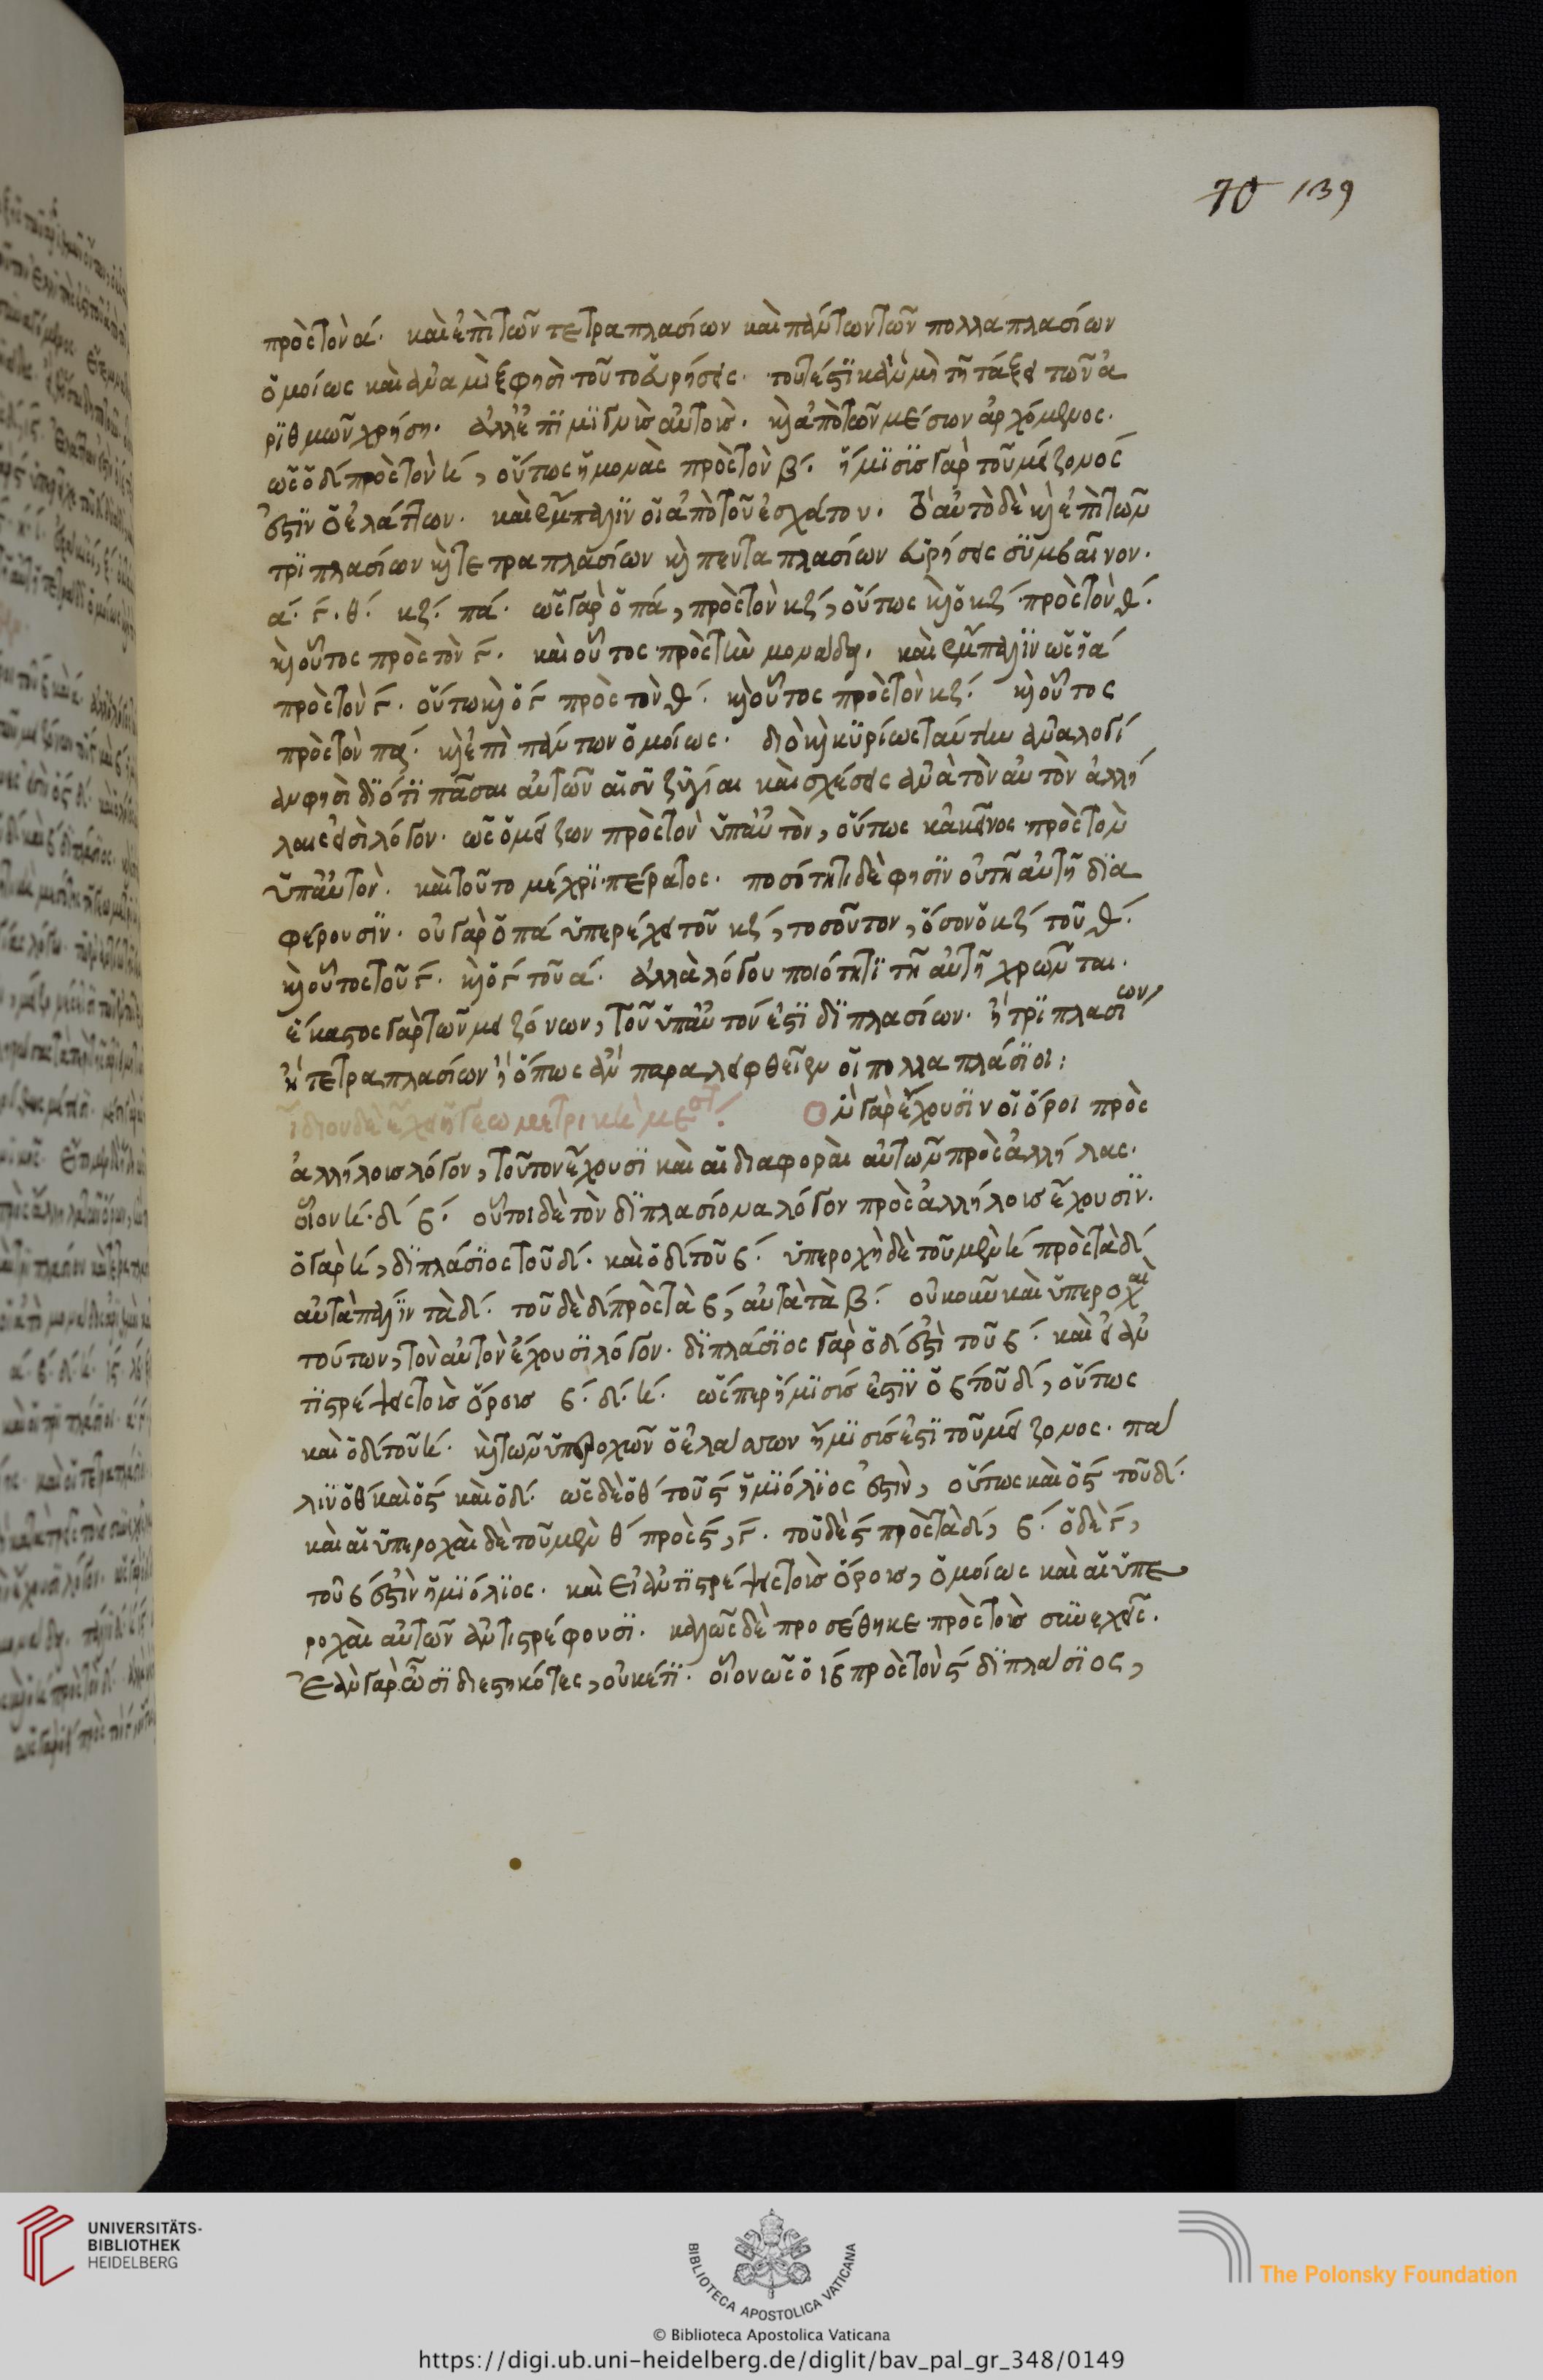 70 139
πρὸς τὸν α΄. καὶ ἐπὶ τῶν τετραπλασίων καὶ πάντων τῶν πολλαπλασίων
ὁμοίως καὶ ἀναμὶξ φησὶ τοῦτο εὑρήσεις. τουτέστι κἂν μὴ τῇ τάξει τῶν ἀ
ριθμῶν χρήσῃ. ἀλλ' ἐπιμιγνὺς αὐτοὺς. καὶ ἀπὸ τῶν μέσων ἀρχόμενος.
ὡς ὁ δ΄ πρὸς τὸν η΄, οὕτως ἡ μονὰς πρὸς τὸν β΄. ἥμισυς γὰρ τοῦ μείζονός
ἐστιν ὁ ἐλάττων. καὶ ἔμπαλιν οἱ ἀπὸ τοῦ ἐσχάτου. τὸ αὐτὸ δὲ καὶ ἐπὶ τῶν
τριπλασίων καὶ τετραπλασίων καὶ πενταπλασίων εὑρήσεις συμβαῖνον.
α΄. γ΄. θ΄. κζ΄. πα΄. ὡς γὰρ ὁ πα΄, πρὸς τὸν κζ΄, οὕτως καὶ ὁ κζ΄ πρὸς τὸν θ΄.
καὶ οὗτος πρὸς τὸν γ΄. καὶ οὗτος πρὸς τὴν μονάδα. καὶ ἔμπαλιν ὡς ἡ α΄
πρὸς τὸν γ΄. οὕτω καὶ ὁ γ΄ πρὸς τὸν θ΄. καὶ οὗτος πρὸς τὸν κζ΄. καὶ οὗτος
πρὸς τὸν πα΄. καὶ ἐπὶ πάντων ὁμοίως. διὸ καὶ κυρίως ταύτην ἀναλογί
αν φησὶ διότι πᾶσαι αὐτῶν αἱ συζυγίαι καὶ σχέσεις ἀνὰ τὸν αὐτὸν ἀλλή
λαις εἰσὶ λόγον. ὡς ὁ μείζων πρὸς τὸν ὑπ' αὐτὸν, οὕτως κἀκεῖνος πρὸς τὸν
ὑπ' αὐτὸν. καὶ τοῦτο μέχρι πέρατος. ποσότητι δὲ φησὶν οὐ τῇ αὐτῇ δια
φέρουσιν. οὐ γὰρ ὁ πα΄ ὑπερέχει τοῦ κζ΄, τοσοῦτον, ὅσον ὁ κζ΄ τοῦ θ΄.
καὶ οὗτος τοῦ γ΄. καὶ ὁ γ΄ τοῦ α΄. ἀλλὰ λόγου ποιότητι τῇ αὐτῇ χρῶνται.
ἕκαστος γὰρ τῶν μειζόνων, τοῦ ὑπ' αὐτόν ἐστι διπλασίων. ἢ τριπλασίων
ἢ τετραπλασίων ἢ ὅπως ἂν παραλειφθεῖεν οἱ πολλαπλάσιοι:
ἴδιον δὲ ἔχει ἡ γεωμετρικὴ μεσότ΄. Ὃν γὰρ ἔχουσιν οἱ ὅροι πρὸς
ἀλλήλους λόγον, τοῦτον ἔχουσι καὶ αἱ διαφοραὶ αὐτῶν πρὸς ἀλλήλας.
οἷον η΄. δ΄. β΄. οὗτοι δὲ τὸν διπλασίονα λόγον πρὸς ἀλλήλους ἔχουσιν.
ὁ γὰρ η΄, διπλάσιος τοῦ δ΄. καὶ ὁ δ΄ τοῦ β΄. ὑπεροχὴ δὲ τοῦ μὲν η΄ πρὸς τὰ δ΄
αὐτὰ πάλιν τὰ δ΄. τοῦ δὲ δ΄ πρὸς τὰ β΄, αὐτὰ τὰ β΄. οὐκοῦν καὶ ὑπεροχαὶ
τούτων, τὸν αὐτὸν ἔχουσι λόγον. διπλάσιος γὰρ ὁ δ΄ ἐστὶ τοῦ β΄. καὶ εἰ ἀν
τιστρέψεις τοὺς ὅρους β΄. δ΄. η΄. ὥσπερ ἥμισύς ἐστιν ὁ β΄ τοῦ δ΄, οὕτως
καὶ ὁ δ΄ τοῦ η΄. καὶ τῶν ὑπεροχῶν ὁ ἐλάττων ἥμισύς ἐστι τοῦ μείζονος. πά
λιν ὁ θ΄ καὶ ὁ ς΄ καὶ ὁ δ΄. ὡς δὲ ὁ θ΄ τοῦ ς΄ ἡμιόλιός ἐστιν, οὕτως καὶ ὁ ς΄ τοῦ δ΄.
καὶ αἱ ὑπεροχαὶ δὲ τοῦ μὲν θ΄ πρὸς ς΄, γ΄. τοῦ δὲ ς΄ πρὸς τὰ δ΄, β΄. ὁ δὲ γ΄,
τοῦ β΄ ἐστὶν ἡμιόλιος. καὶ εἰ ἀντιστρέψεις τοὺς ὅρους, ὁμοίως καὶ αἱ ὑπε
ροχαὶ αὐτῶν ἀντιστρέφουσι. καλῶς δὲ προσέθηκε πρὸς τοὺς συνεχεῖς.
Ἐὰν γὰρ ὦσι διεστηκότες, οὐκέτι. οἷον ὡς ὁ ιβ΄ πρὸς τὸν ς΄ διπλάσιος,
UNIVERSITÄTS-
BIBLIOTHEK
HEIDELBERG
BIBLIOTECA APOSTOLICA VATICANA
The Polonsky Foundation
© Biblioteca Apostolica Vaticana
https://digi.ub.uni-heidelberg.de/diglit/bav_pal_gr_348/0149